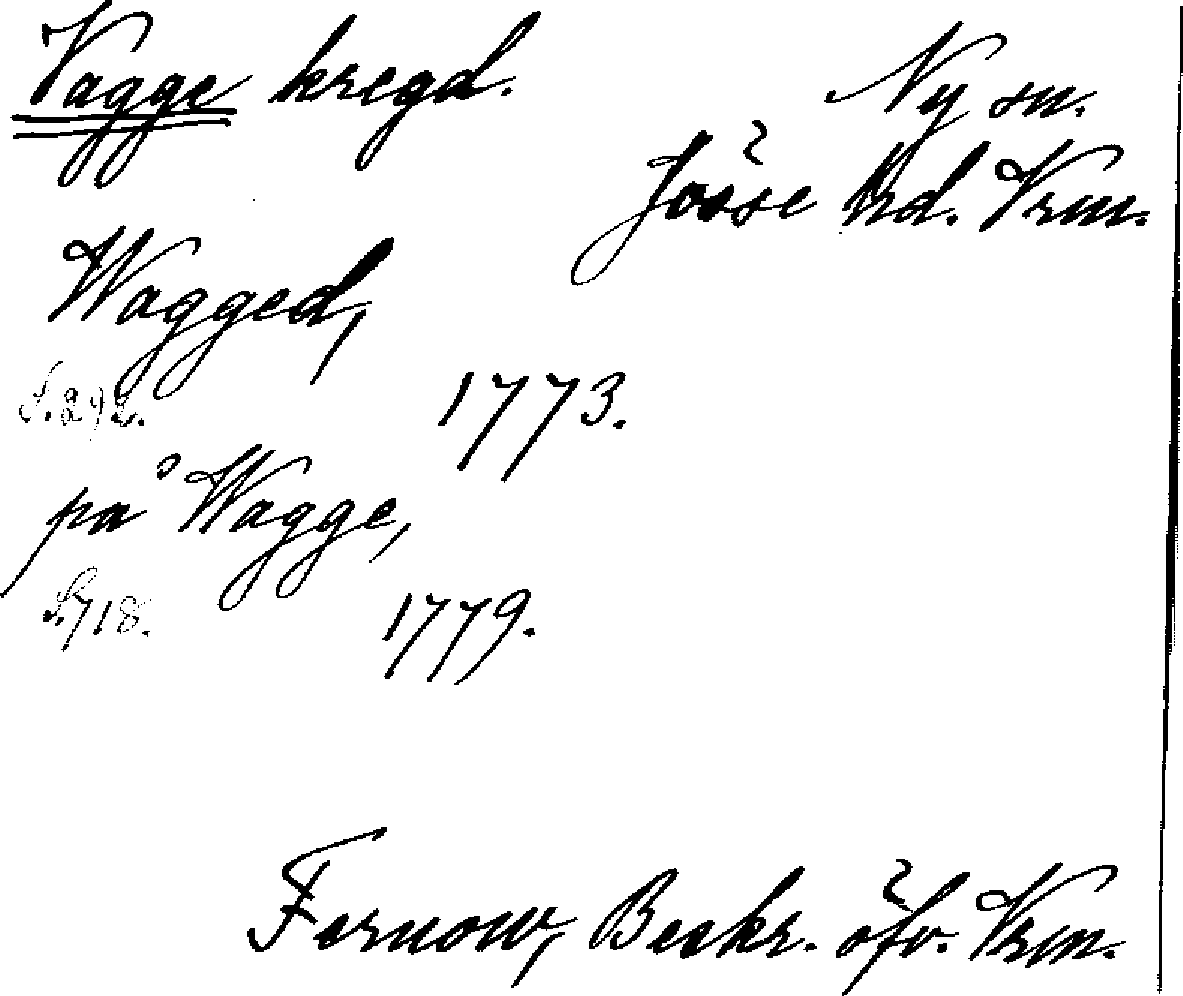 Vagge kregd.
Ny sn.
Jösse hd. Vrm.
Wagged,
S. 292.
1773.
på Wagge,
S. 718.
1779.
Fernow, Beskr. öfv. Vrm.